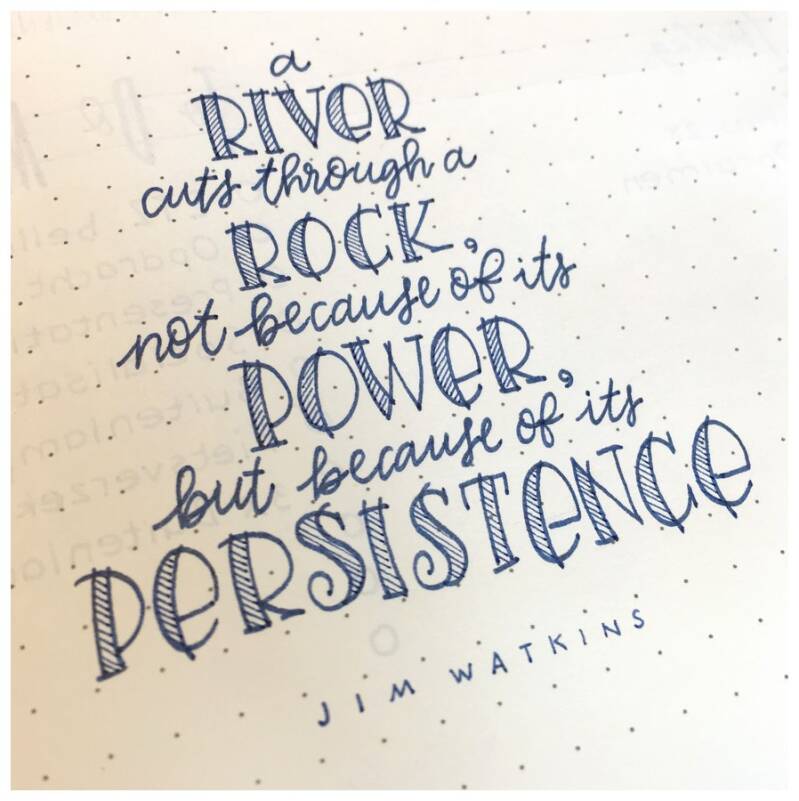 a
RIVER
cuts through a
ROCK,
not because of its
POWER,
but because of its
PERSISTENCE
JIM WATKINS